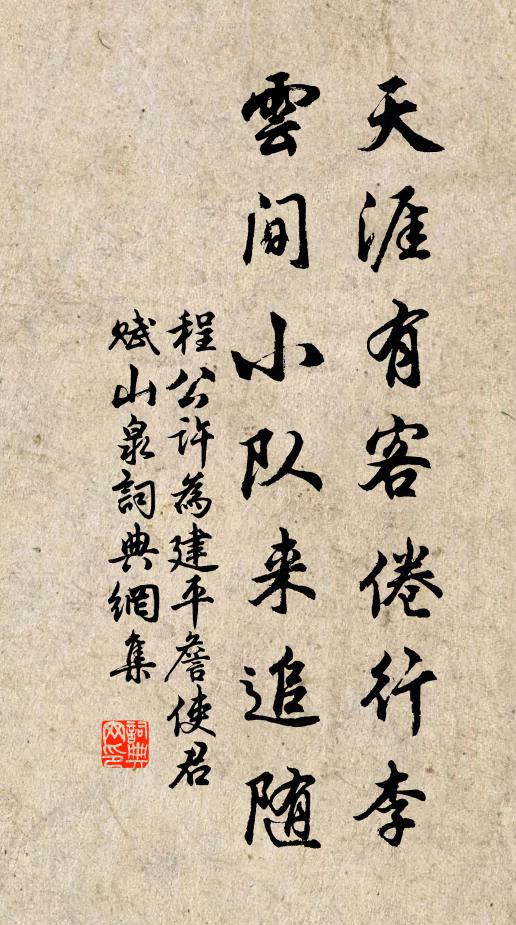 天涯有客倦行李
雲间小队来追随
程公许為建平詹使君
赋山泉詞典網集
詞典網印